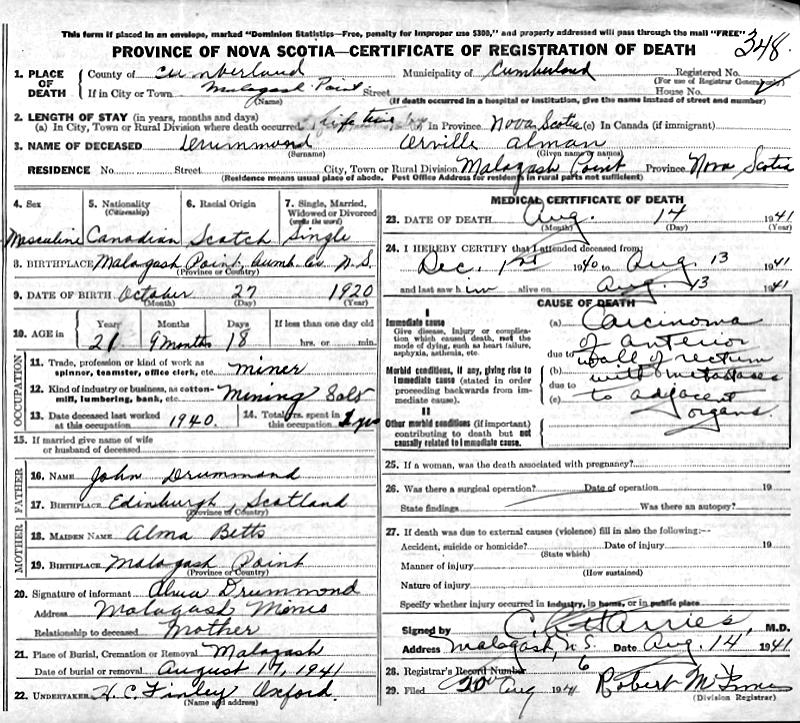 This form if placed in an envelope, marked "Dominion Statistics—Free, penalty for improper use $300," and properly addressed will pass through the mail "FREE"
PROVINCE OF NOVA SCOTIA—CERTIFICATE OF REGISTRATION OF DEATH 348.
1. PLACE OF DEATH County of Cumberland Municipality of Cumberland Registered No.
(For use of Registrar General only)
If in City or Town Malagash Point Street House No.
(Name) (If death occurred in a hospital or institution, give the name instead of street and number)
2. LENGTH OF STAY (in years, months and days)
(a) In City, Town or Rural Division where death occurred life time (b) In Province Nova Scotia (c) In Canada (if immigrant)
3. NAME OF DECEASED Drummond Orville Alman
(Surname) (Given name or names)
RESIDENCE No. Street City, Town or Rural Division Malagash Point Province Nova Scotia
(Residence means usual place of abode. Post Office Address for residents in rural parts not sufficient)
4. Sex 5. Nationality (Citizenship) 6. Racial Origin 7. Single, Married, Widowed or Divorced (write the word)
Masculine Canadian Scotch Single
8. BIRTHPLACE Malagash Point, Cumb. Co. N.S.
(Province or Country)
9. DATE OF BIRTH October 27 1920
(Month) (Day) (Year)
10. AGE in Years Months Days If less than one day old
9 months 18 hrs. or min.
OCCUPATION
11. Trade, profession or kind of work as spinner, teamster, office clerk, etc. miner
12. Kind of industry or business, as cotton-mill, lumbering, bank, etc. Mining Salt
13. Date deceased last worked at this occupation 1940. 14. Total yrs. spent in this occupation yrs
15. If married give name of wife or husband of deceased
FATHER
16. NAME John Drummond
17. BIRTHPLACE Edinburgh, Scotland
(Province or Country)
MOTHER
18. MAIDEN NAME Alma Betts
19. BIRTHPLACE Malagash Point
(Province or Country)
20. Signature of informant Alma Drummond
Address Malagash Mines
Relationship to deceased Mother
21. Place of Burial, Cremation or Removal Malagash
Date of burial or removal August 17, 1941
22. UNDERTAKER H. C. Finley Oxford.
(Name and address)
MEDICAL CERTIFICATE OF DEATH
23. DATE OF DEATH Aug. 14 1941
(Month) (Day) (Year)
24. I HEREBY CERTIFY that I attended deceased from:
Dec. 1st 1940 to Aug. 13 1941
and last saw him alive on Aug. 13 1941
CAUSE OF DEATH
I
Immediate cause
Give disease, injury or complication which caused death, not the mode of dying, such as heart failure, asphyxia, asthenia, etc.
Morbid conditions, if any, giving rise to immediate cause (stated in order proceeding backwards from immediate cause).
II
Other morbid conditions (if important) contributing to death but not causally related to immediate cause.
(a) Carcinoma
of anterior
due to wall of rectum
(b) with metastases
due to
(c) to adjacent
organs.
25. If a woman, was the death associated with pregnancy?
26. Was there a surgical operation? Date of operation 19
State findings Was there an autopsy?
27. If death was due to external causes (violence) fill in also the following:—
Accident, suicide or homicide? Date of injury 19
(State which)
Manner of injury
(How sustained)
Nature of injury
Specify whether injury occurred in industry, in home, or in public place
Signed by M.D.
Address Malagash, N.S. Date Aug. 14 1941
28. Registrar's Record Number 6
29. Filed 20 Aug 1941 Robert
(Division Registrar)